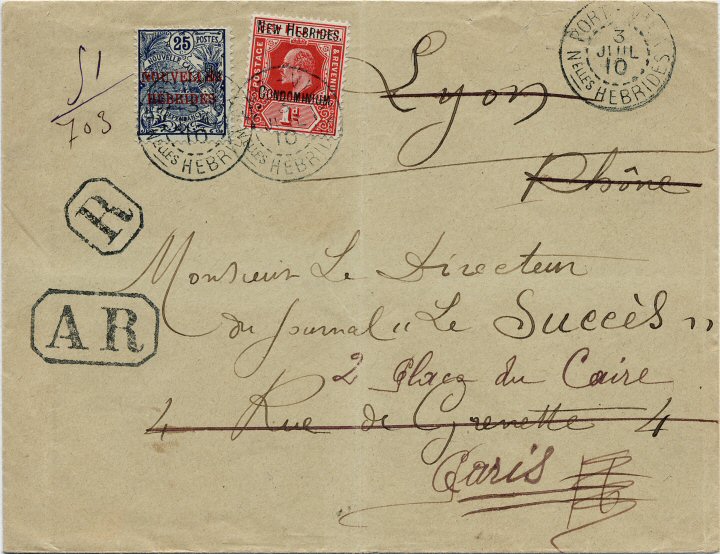 51
703
25 POSTES
NOUVELLES
HEBRIDES
NEW HEBRIDES.
POSTAGE & REVENUE
CONDOMINIUM.
1d
PORT-VILA
3
JUIL
10
Nelles HEBRIDES
10
Nelles HEBRIDES
10
Nelles HEBRIDES
Lyon
Rhône
R
AR
Monsieur Le Directeur
du Journal " Le Succès "
2 Place du Caire
4 Rue de Grenette 4
Paris